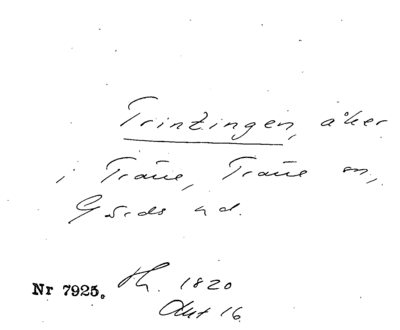 Trintzingen, åker
i Träne, Träne sn,
Gärds hd.
Nr 7925. Sk. 1820
Akt 16